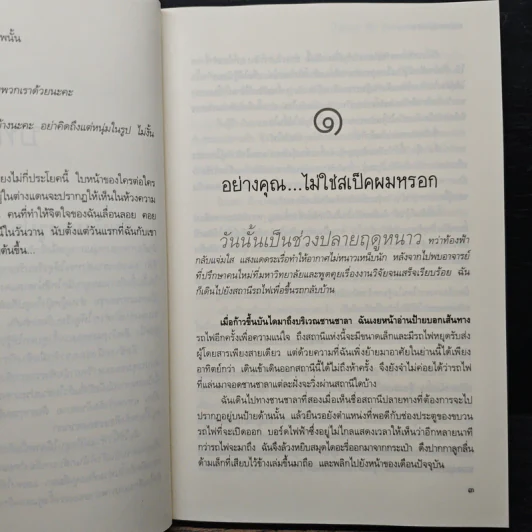 พนั้น
ะพวกเราด้วยนะคะ
้างนะคะ อย่าคิดถึงแต่หนุ่มในรูป ไม่งั้น
ยงไม่กี่ประโยคนี้ ใบหน้าของใครต่อใคร
ู้ในต่างแดนจะปรากฏให้เห็นในห้วงความ
คนที่ทำให้จิตใจของฉันเลื่อนลอย คอย
นีในวันวาน นับตั้งแต่วันแรกที่ฉันกับเขา
ต้นขึ้น...
๑
อย่างคุณ...ไม่ใช่สเป็คผมหรอก
วันนั้นเป็นช่วงปลายฤดูหนาว ทว่าท้องฟ้า
กลับแจ่มใส แสงแดดระเรื่อทำให้อากาศไม่หนาวเหน็บนัก หลังจากไปพบอาจารย์
ที่ปรึกษาคนใหม่ที่มหาวิทยาลัยและพูดคุยเรื่องงานวิจัยจนเสร็จเรียบร้อย ฉัน
ก็เดินไปยังสถานีรถไฟเพื่อขึ้นรถกลับบ้าน
เมื่อก้าวขึ้นบันไดมาถึงบริเวณชานชาลา ฉันเงยหน้าอ่านป้ายบอกเส้นทาง
รถไฟอีกครั้งเพื่อความแน่ใจ ถึงสถานีแห่งนี้จะมีขนาดเล็กและมีรถไฟหยุดรับส่ง
ผู้โดยสารเพียงสายเดียว แต่ด้วยความที่ฉันเพิ่งย้ายมาอาศัยในย่านนี้ได้เพียง
อาทิตย์กว่า เดินเข้าเดินออกสถานีนี้ได้ไม่ถึงห้าครั้ง จึงยังจำไม่ค่อยได้ว่ารถไฟ
ที่แล่นมาจอดชานชาลาแต่ละฝั่งจะวิ่งผ่านสถานีใดบ้าง
ฉันเดินไปทางชานชาลาที่สองเมื่อเห็นชื่อสถานีปลายทางที่ต้องการจะไป
ปรากฏอยู่บนป้ายด้านนั้น แล้วยืนรอยังตำแหน่งที่พอดีกับช่องประตูของขบวน
รถไฟที่จะเปิดออก บอร์ดไฟฟ้าซึ่งอยู่ไม่ไกลแสดงเวลาให้เห็นว่าอีกหลายนาที
กว่ารถไฟจะมาถึง ฉันจึงล้วงหยิบสมุดไดอะรี่ออกมาจากกระเป๋า ดึงปากกาลูกลื่น
ด้ามเล็กที่เสียบไว้ข้างเล่มขึ้นมาถือ และพลิกไปยังหน้าของเดือนปัจจุบัน
๓